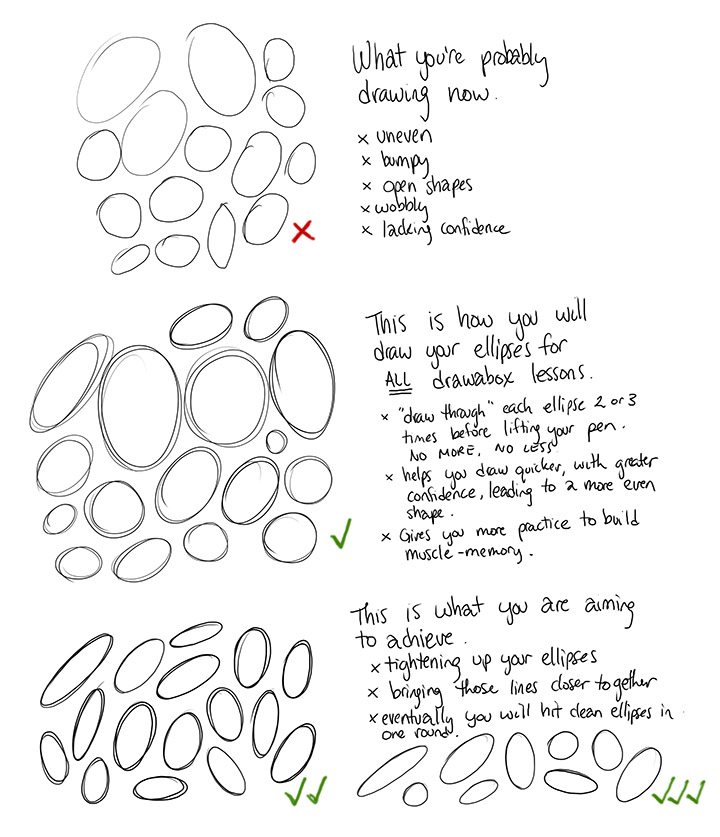 What you're probably
drawing now.
× uneven
× bumpy
× open shapes
× wobbly
× lacking confidence
This is how you will
draw your ellipses for
ALL drawabox lessons.
× "draw through" each ellipse 2 or 3
times before lifting your pen.
NO MORE, NO LESS
× helps you draw quicker, with greater
confidence, leading to a more even
shape.
× Gives you more practice to build
muscle-memory.
This is what you are aiming
to achieve.
× tightening up your ellipses
× bringing those lines closer together
× eventually you will hit clean ellipses in
one round.